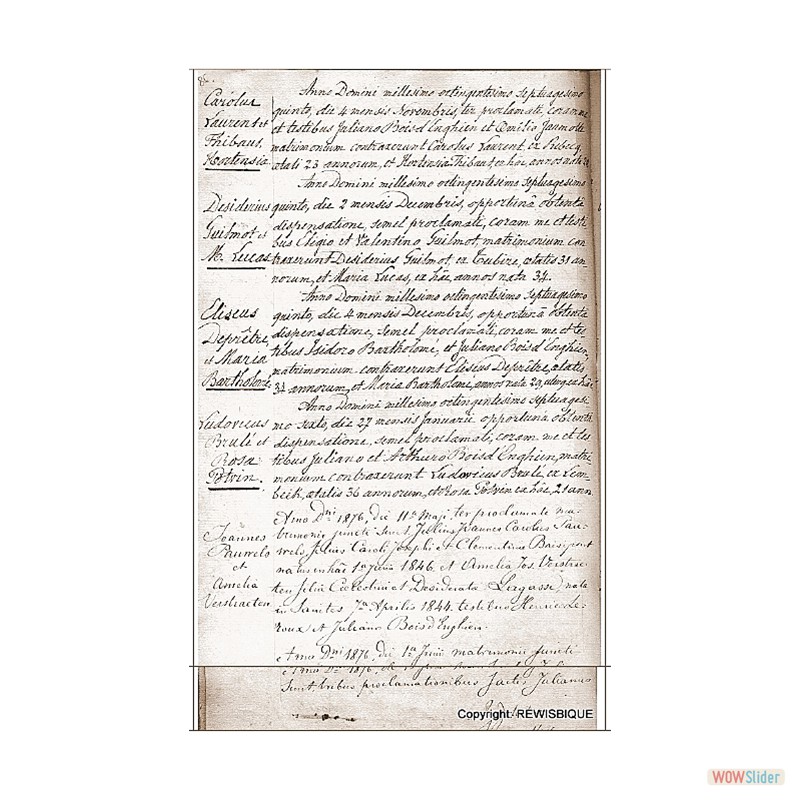 86.
Carolus
Laurent et
Thibaut
Hortensia.
Anno Domini millesimo octingentesimo septuagesimo
quinto, die 4 mensis Novembris, ter proclamati, coram me
et testibus Juliano Bois d'Enghien et Emilio Jannotte
matrimonium contraxerunt Carolus Laurent, ex
ætatis 23 annorum, et Hortensia Thibaut ex hâc, annos nata
Desiderius
Guilmot et
M. Lucas
Anno Domini millesimo octingentesimo septuagesimo
quinto, die 2 mensis Decembris, opportunâ obtentâ
dispensatione, semel proclamati, coram me et testi
bus Eligio et Valentino Guilmot, matrimonium con
traxerunt Desiderius Guilmot, ex Tubize, ætatis 31 an
norum, et Maria Lucas, ex hâc, annos nata 34.
Eliseus
Deprêtre
et Maria
Bartholomé
Anno Domini millesimo octingentesimo septuagesimo
quinto, die 4 mensis Decembris, opportunâ obtentâ
dispensatione, semel proclamati, coram me et tes
tibus Isidoro Bartholomé, et Juliano Bois d'Enghien,
matrimonium contraxerunt Eliseus Deprêtre, ætatis
34 annorum, et Maria Bartholomé, annos nata 29, uterq. ex hâc
Ludovicus
Brulé et
Rosa
Potvin.
Anno Domini millesimo octingentesimo septuagesi
mo sexto, die 27 mensis Januarii opportunâ obtentâ
dispensatione, semel proclamati, coram me et tes
tibus Juliano et Arthuro Bois d'Enghien, matri
monium contraxerunt Ludovicus Brulé, ex Lem
beck, ætatis 36 annorum, et Rosa Potvin ex hâc, 21 ann.
Joannes
Pauwels
et
Amelia
Verstraeten
Anno Dni 1876, die 11a Maji ter proclamati ma
trimonio juncti sunt Julius Joannes Carolus Pau-
wels, filius Caroli Josephi et Clementinæ Baisipont
natus in hâc 1a Junii 1846. et Amelia Jos. Verstrae
ten filia Celestini et Desiderata Lagasse, nata
in Sanctes 7a Aprilis 1844. testibus Henrico Le-
roux et Juliano Bois d'Enghien.
Anno Dni 1876, die 1a Junii matrimonii juncti
sunt, tribus proclamationibus factis, Julianus
Copyright: REWISBIQUE
WOWSlider